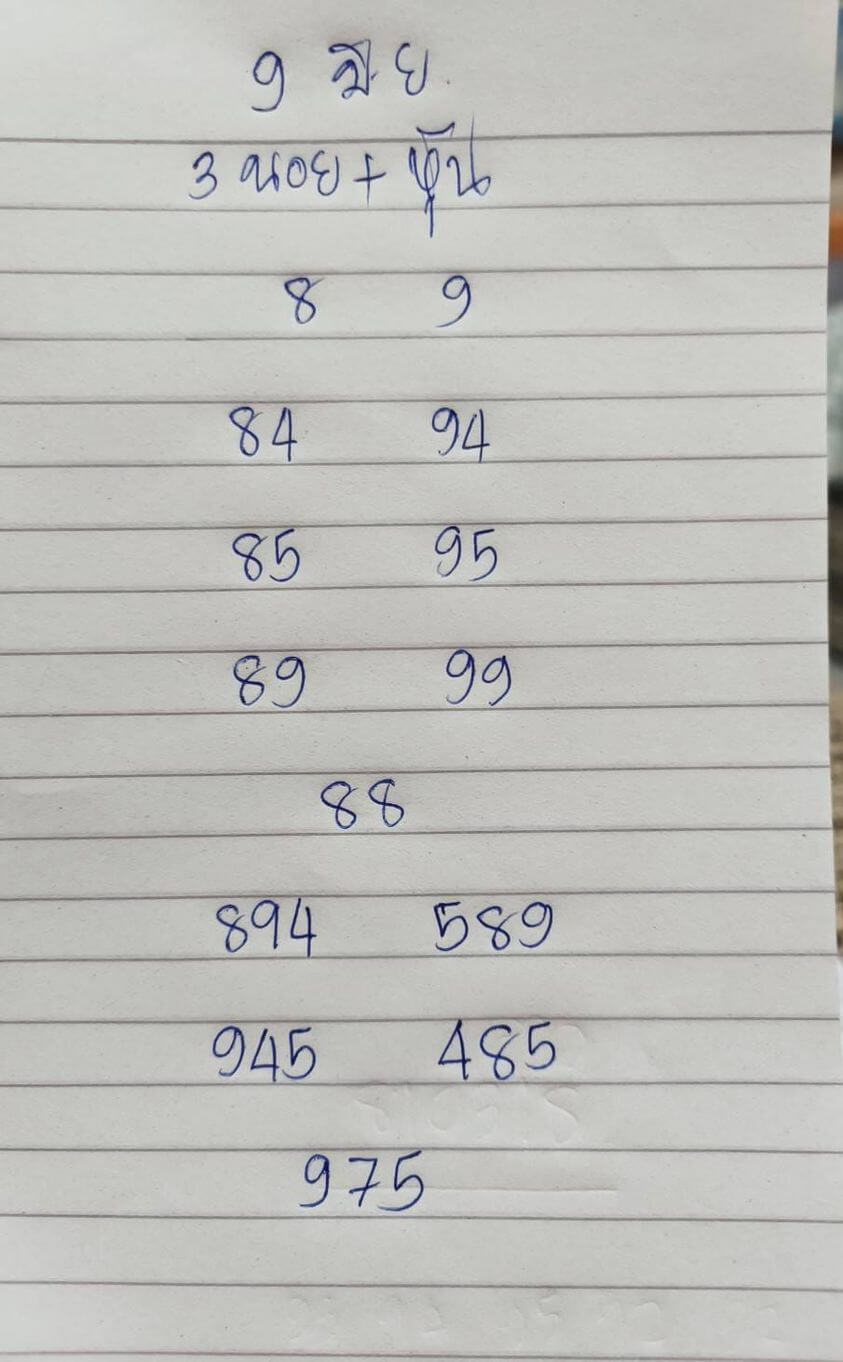 9 มิ ย.
3 นอย + หุ้น
8 9
84 94
85 95
89 99
88
894 589
945 485
975